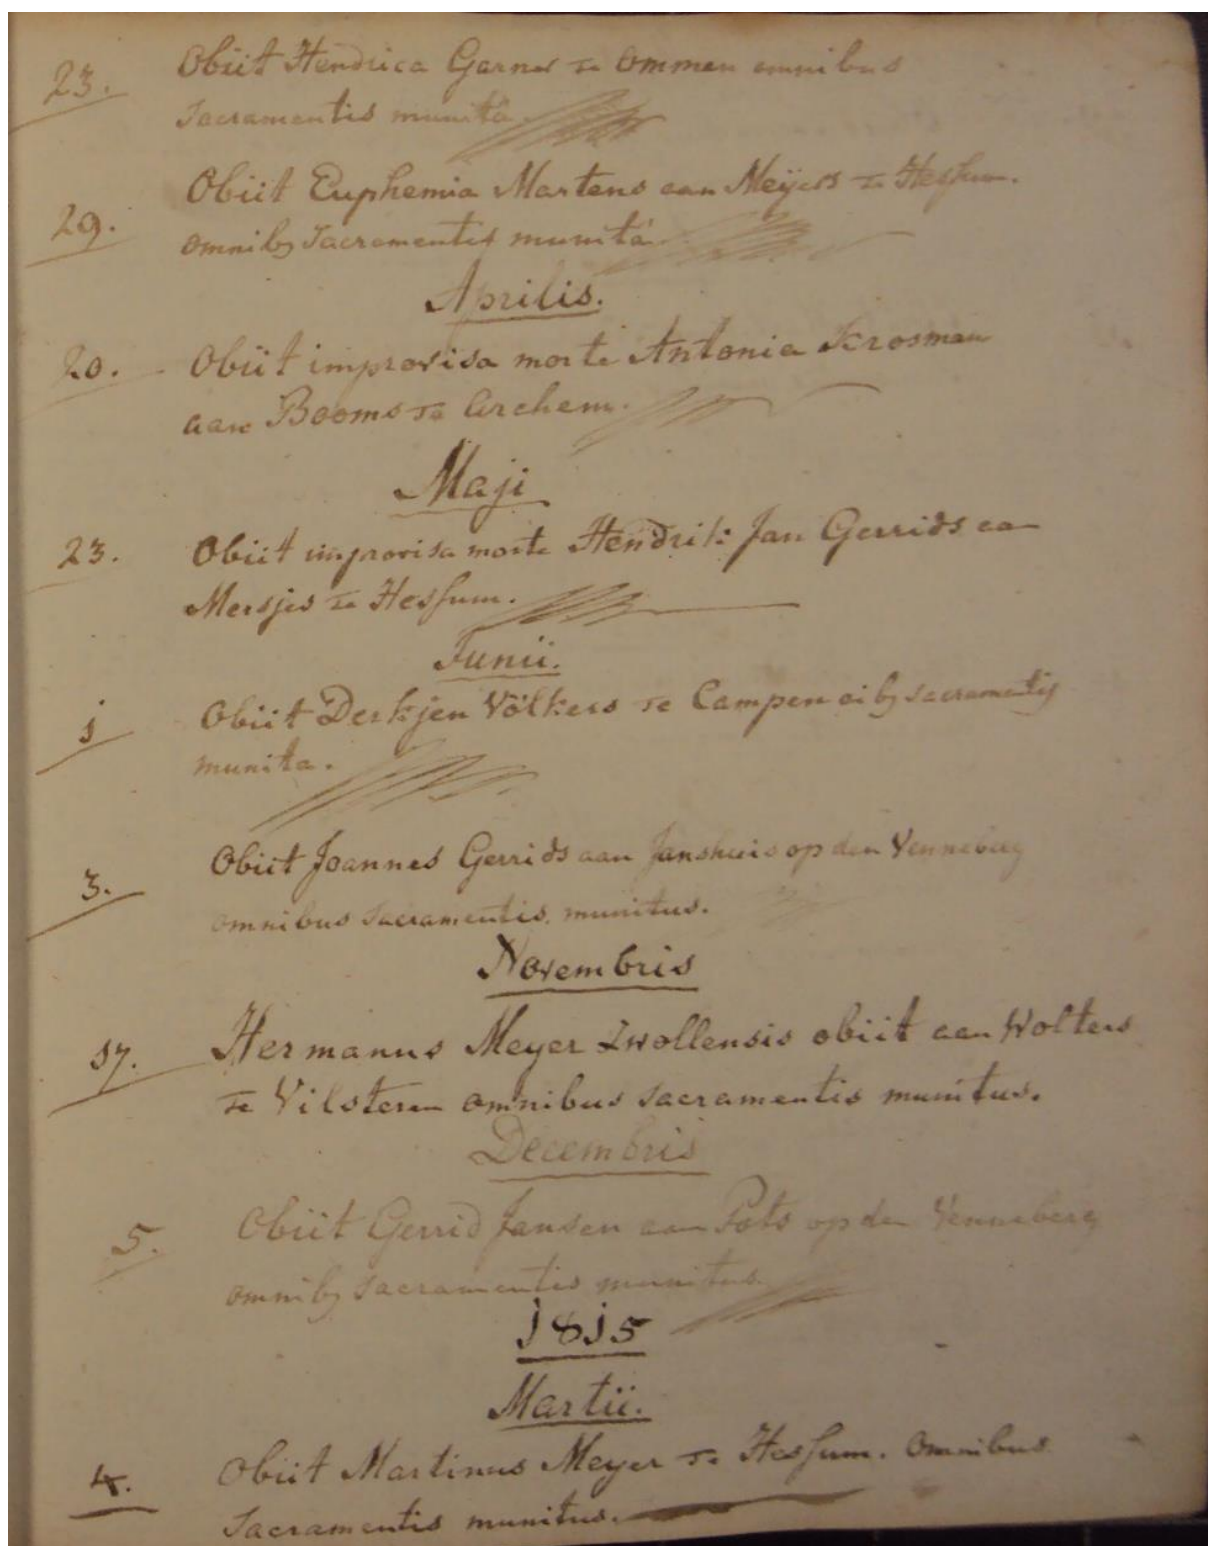 23. Obiit Hendrica Garnes te Ommen omnibus
Sacramentis munita.
29. Obiit Euphemia Martens aan Meÿers te Hessum.
omnibꝫ Sacramentis munita.
Aprilis.
20. Obiit improvisa morte Antonia Krosman
aan Booms te Archem.
Maji
23. Obiit improvisa morte Hendrik Jan Gerrids aan
Mersjes te Hessum.
Junii.
1 Obiit Derkjen Völkers te Campen oibꝫ sacramentis
munita.
3. Obiit Joannes Gerrids aan Janshuis op den Venneberg
omnibus Sacramentis munitus.
Novembris
17. Hermanus Meyer Zwollensis obiit aan Wolters
te Vilsteren omnibus sacramentis munitus.
Decembris
5. Obiit Gerrid Jansen aan Pots op den Venneberg
omnibꝫ Sacramentis munitus.
1815
Martii.
4. Obiit Martinus Meyer te Hessum. Omnibus
Sacramentis munitus.